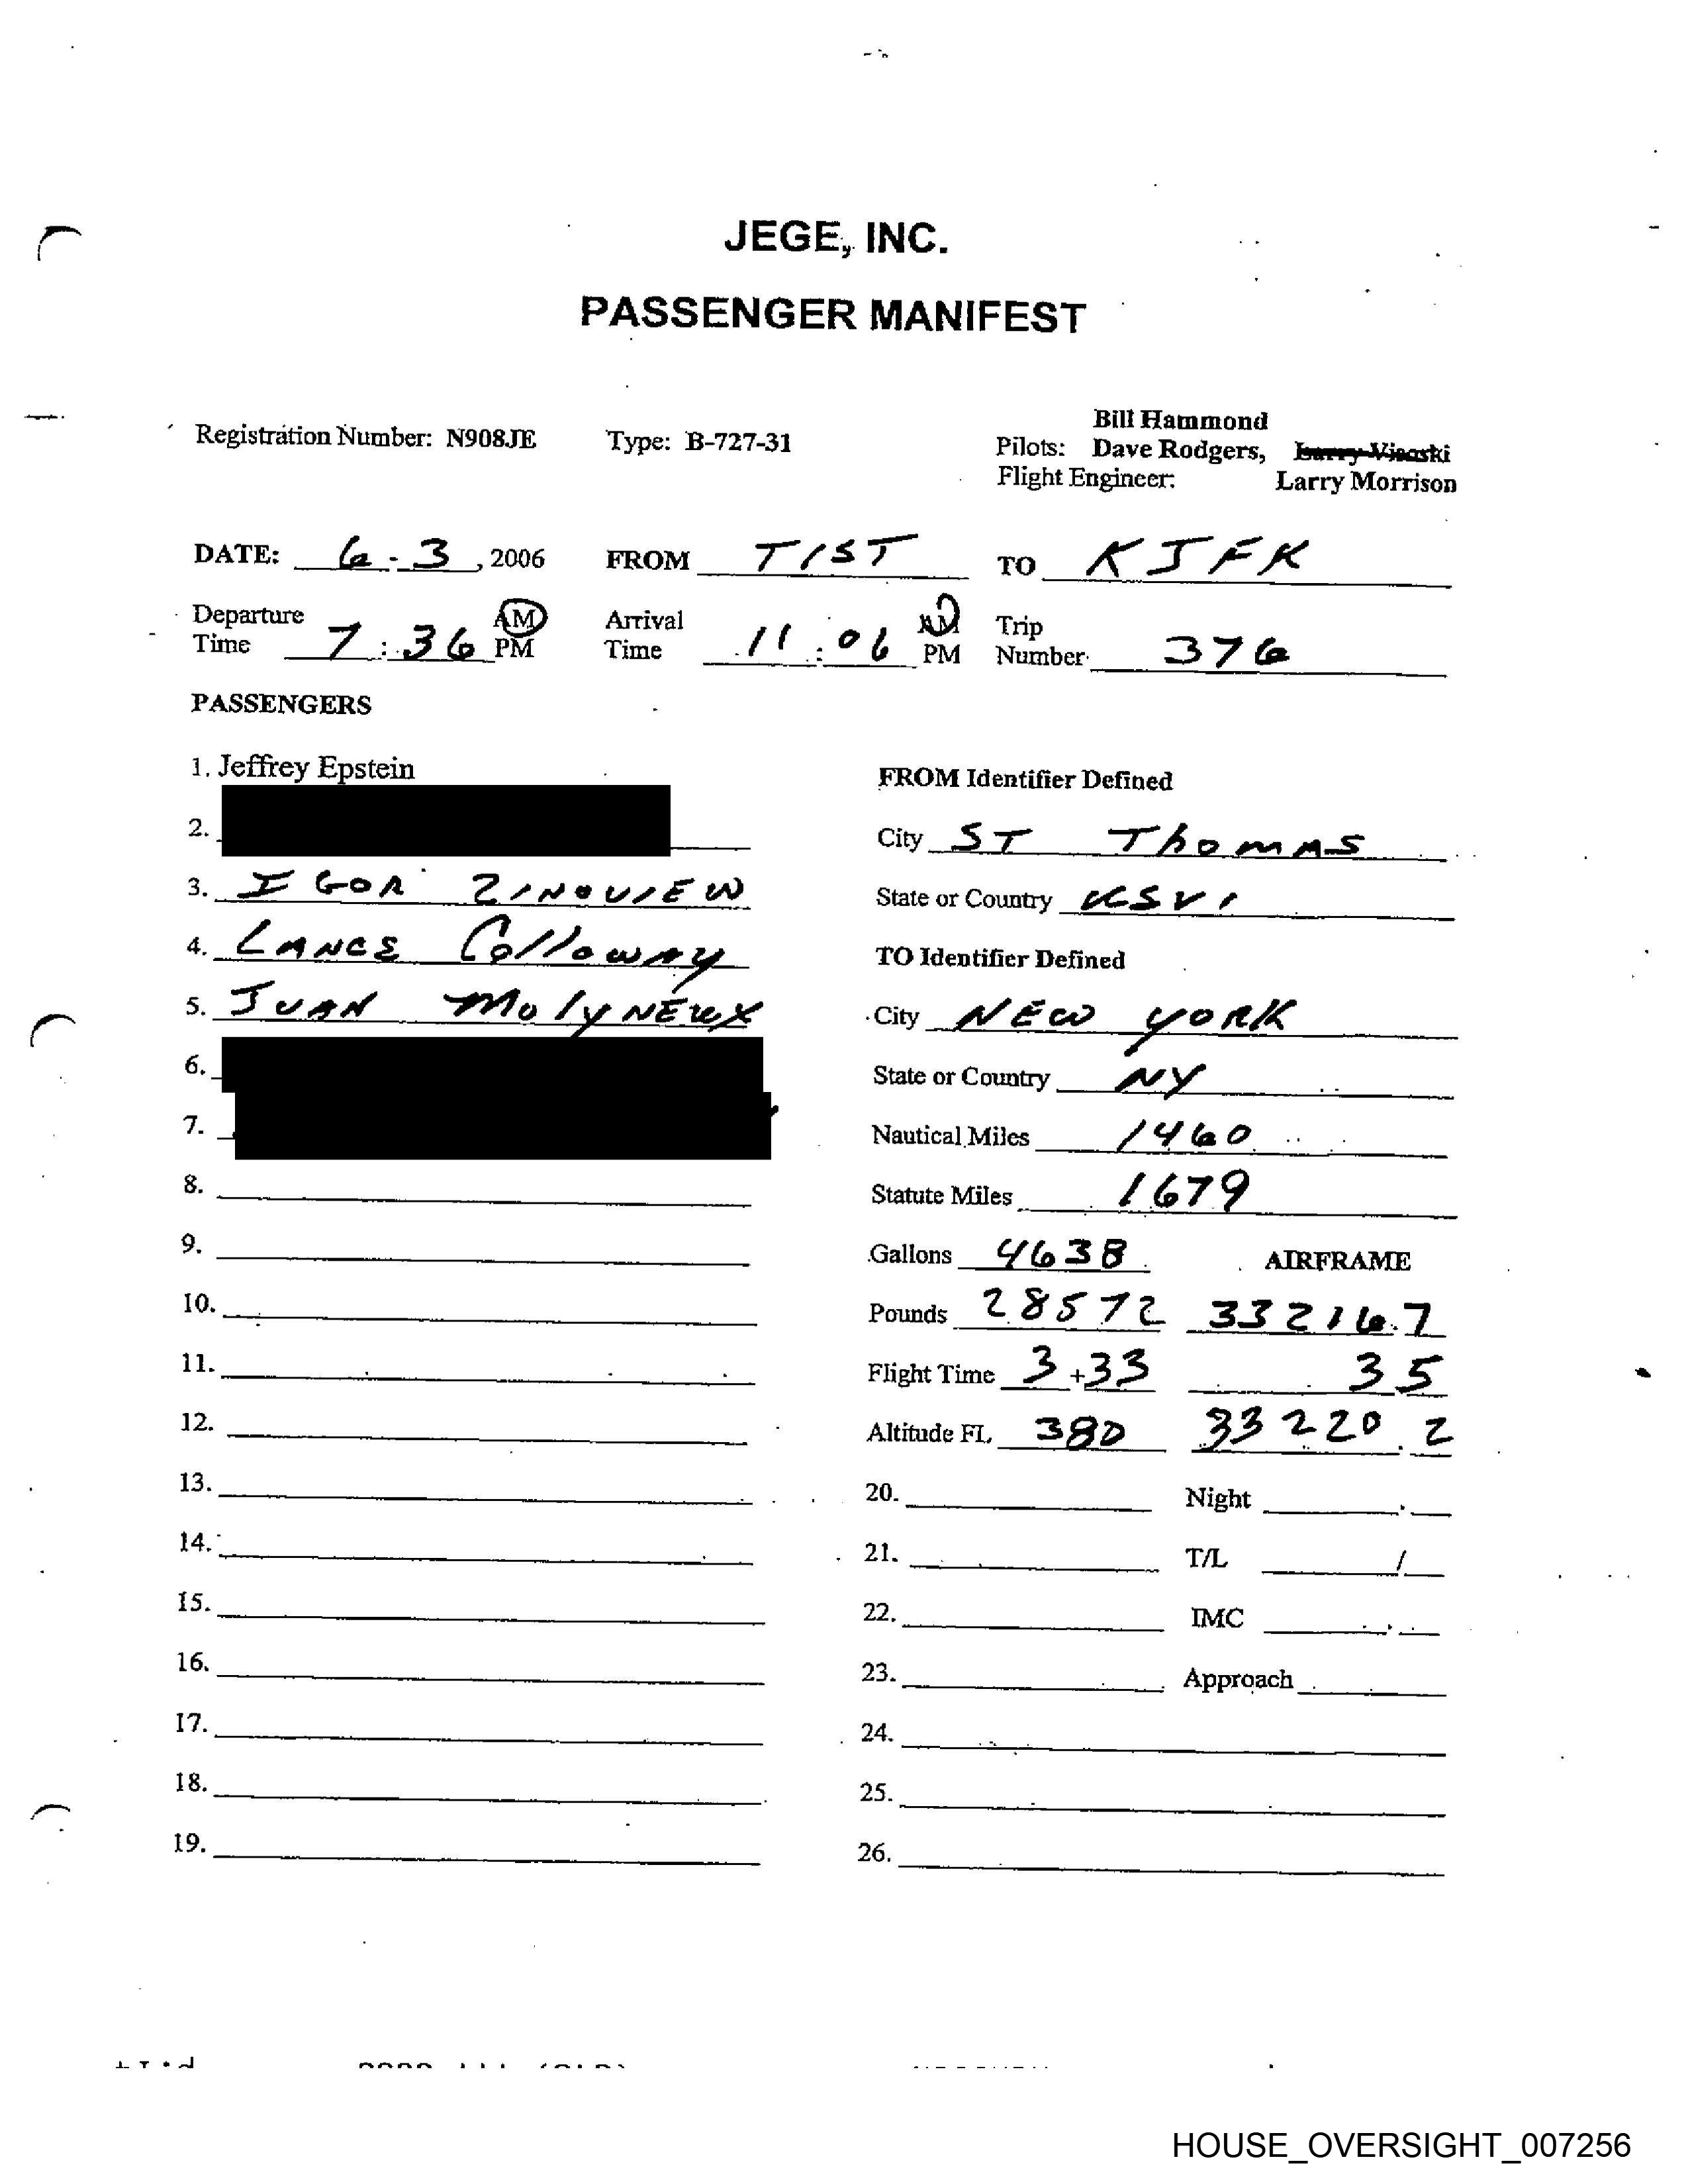 JEGE, INC.
PASSENGER MANIFEST
Bill Hammond
Registration Number: N908JE Type: B-727-31 Pilots: Dave Rodgers, Larry Visoski
Flight Engineer: Larry Morrison
DATE: 6-3, 2006 FROM TIST TO KJFK
Departure Time 7:36 AM PM Arrival Time 11:06 AM PM Trip Number 376
PASSENGERS
1. Jeffrey Epstein
FROM Identifier Defined
2.
City ST ThomAS
3. IGOR ZINOVIEW
State or Country USVI
4. LANCE CollowAy
TO Identifier Defined
5. JUAN MolyNEUX
City NEW YORK
6.
State or Country NY
7.
Nautical Miles 1460
8.
Statute Miles 1679
9.
Gallons 4638 AIRFRAME
10.
Pounds 28572 33216.7
11.
Flight Time 3+33 3 5
12.
Altitude FL 380 33220.2
13.
20. Night
14.
21. T/L /
15.
22. IMC
16.
23. Approach
17.
24.
18.
25.
19.
26.
HOUSE_OVERSIGHT_007256